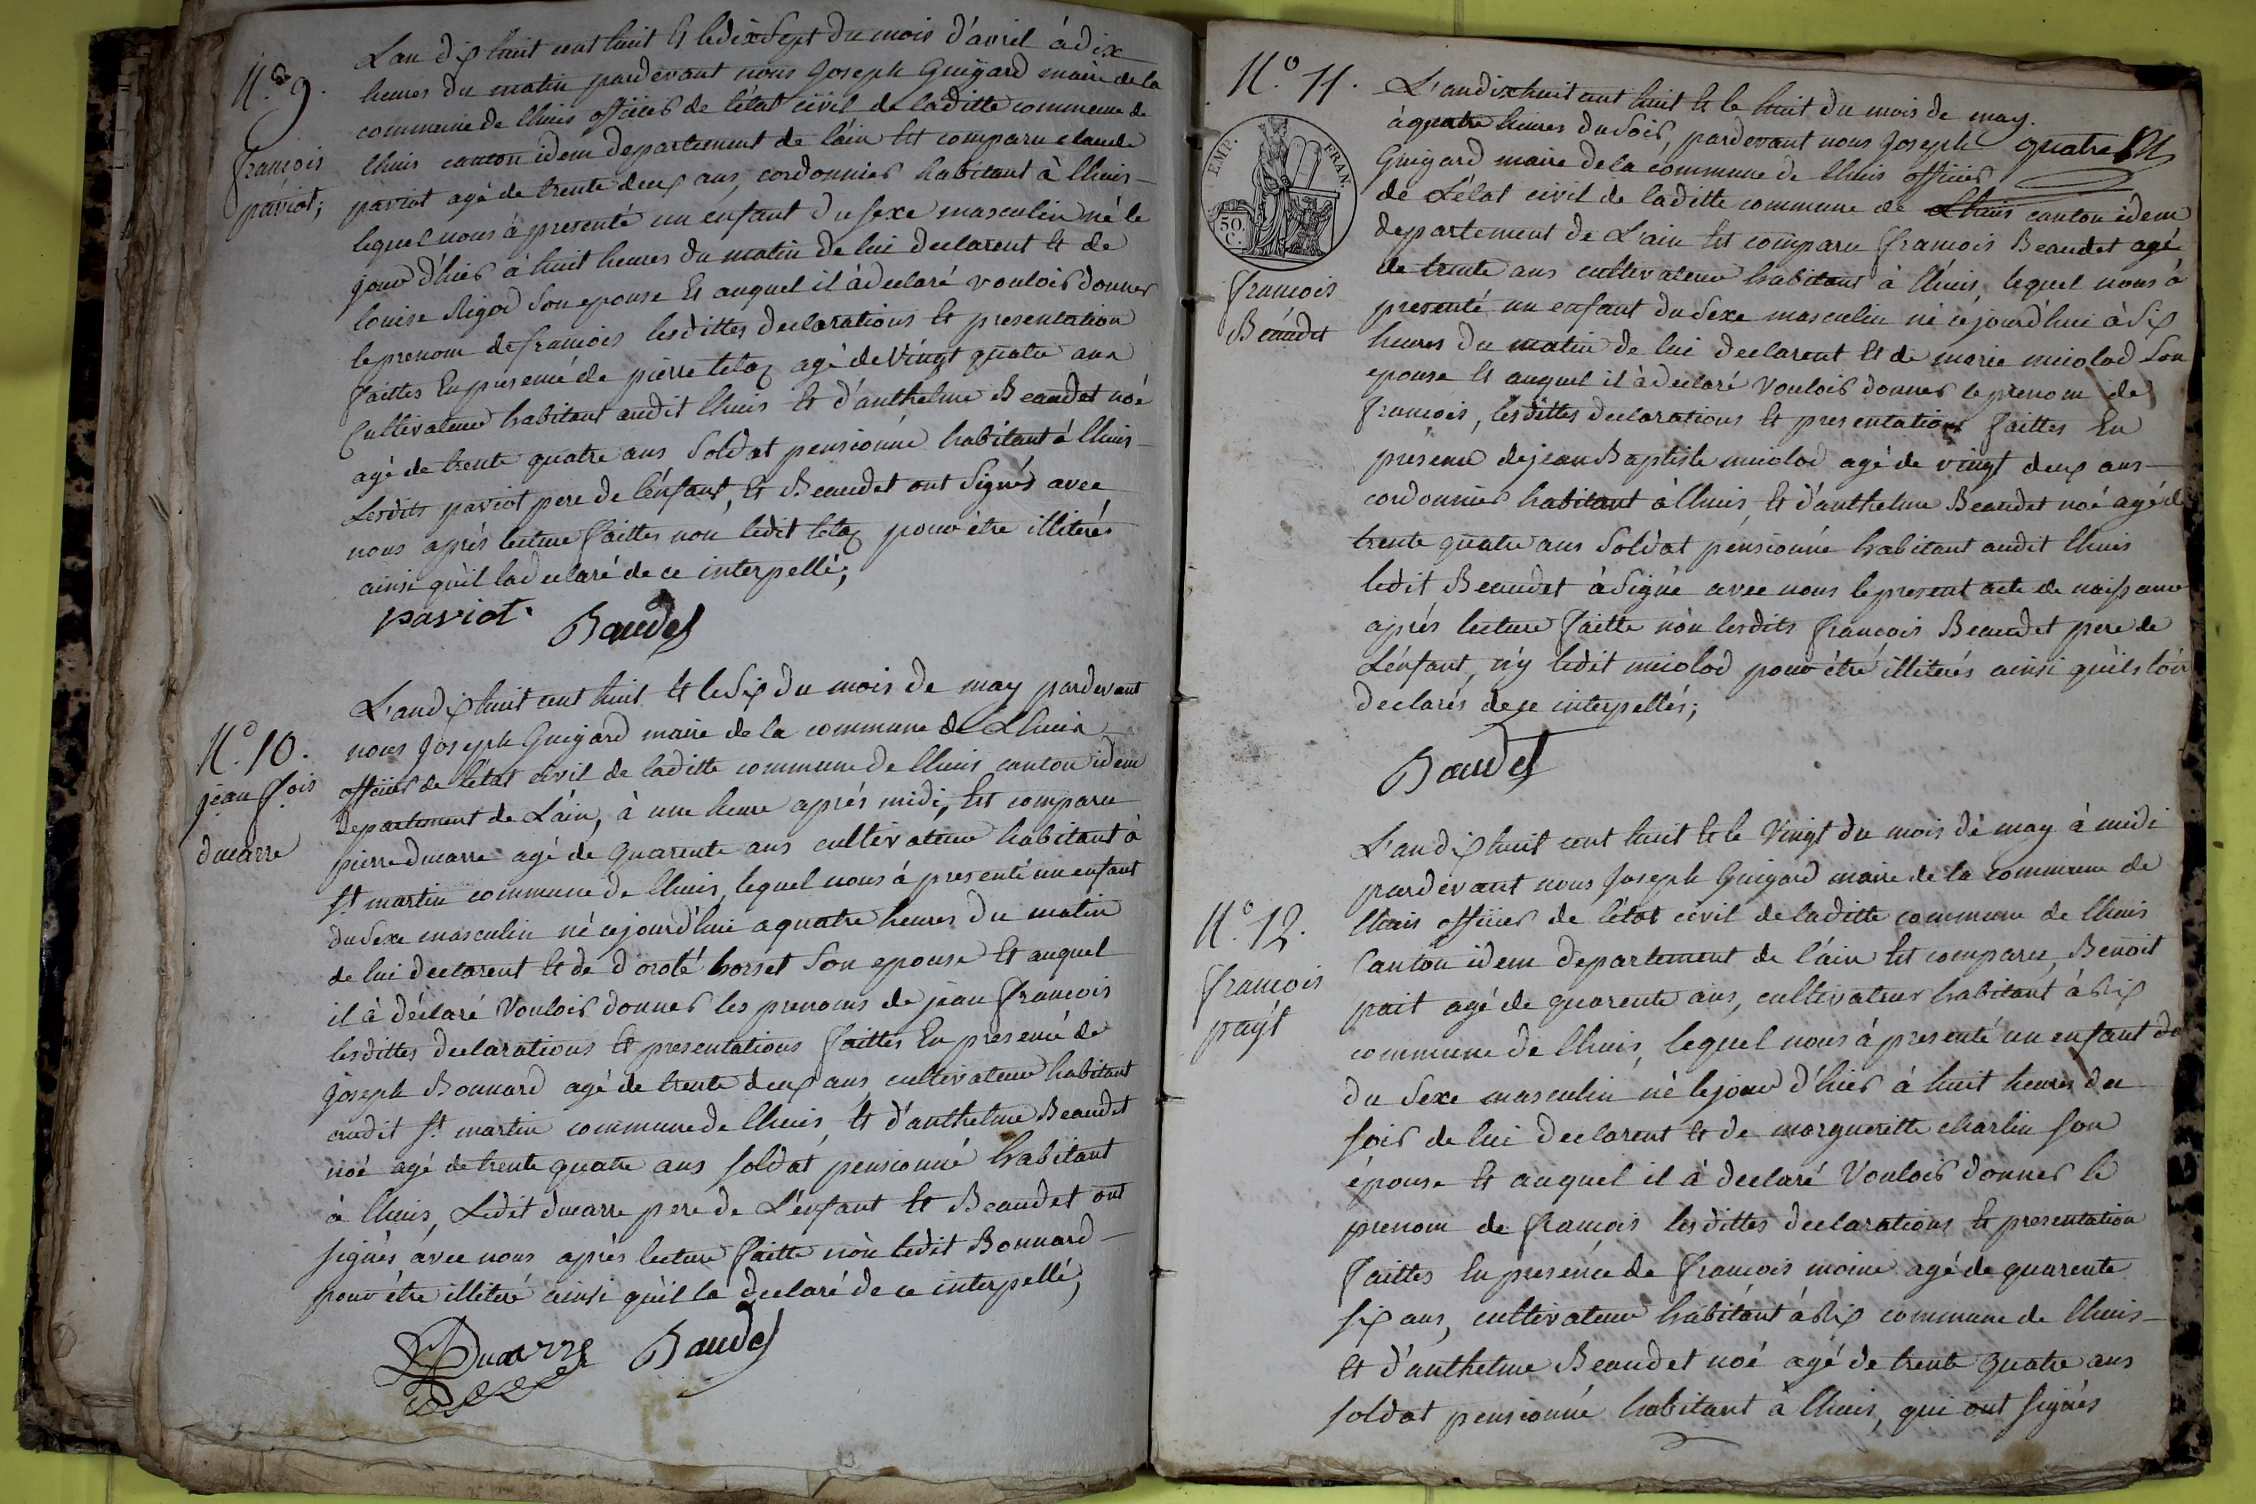 N.o 9.
françois
paviot;
L'an dix huit cent huit Et le dix sept du mois d'avril à dix
heures du matin pardevant nous Joseph Guigard maire de la
commune de lhuis officier de l'état civil de laditte commune de
lhuis canton idem departement de l'ain Est comparu claude
paviot agé de trente deux ans, cordonnier habitant à lhuis –
lequel nous à presenté un enfant du sexe masculin né le
jour d'hier à huit heures du matin de lui declarent Et de
louise Rigod son epouse Et auquel il à declaré vouloir donner
le prenom de françois lesdittes declarations Et presentation
faittes En presence de pierre tetaz agé de vingt quatre ans
Cultivateur habitant audit lhuis Et d'anthelme Beaudet noé
agé de trente quatre ans Soldat pensionné habitant à lhuis –
Lesdits paviot pere de l'enfant, Et Beaudet ont signés avec
nous aprés lecture faittes non ledit tetaz pour être illiterés
ainsi qu'il la declaré de ce interpellé;
paviot. Baudet
N.o 10.
jean f.ois
ducarre
L'an dix huit cent huit Et le six du mois de may pardevant
nous Joseph Guigard maire de la commune de Lhuis
officier de l'état civil de laditte commune de lhuis canton idem
departement de L'ain, à une heure aprés midi, Est comparu
pierre ducarre agé de quarente ans cultivateur habitant à
s.t martin commune de lhuis, lequel nous à presenté un enfant
du sexe masculin né cejourd'hui a quatre heures du matin
de lui declarent Et de doroté borset son epouse Et auquel
il à déclaré vouloir donner les prenoms de jean françois
lesdittes declarations Et presentations faittes En presence de
Joseph Bonnard agé de trente deux ans, cultivateur habitant
audit s.t martin commune de lhuis, Et d'anthelme Beaudet
noé agé de trente quatre ans soldat pensionné habitant
à lhuis, Ledit ducarre pere de L'enfant Et Beaudet ont
signés avec nous après lecture faitte non ledit Bonnard –
pour être illiteré ainsi qu'il la declaré de ce interpellé,
Ducarre Baudet
N.o 11.
EMP. FRAN.
50 C.
françois
Beaudet
L'an dix huit cent huit Et le huit du mois de may.
à quatre heures du soir, pardevant nous Joseph quatre
Guigard maire de la commune de lhuis officier
de L'état civil de laditte commune de Lhuis canton idem
departement de L'ain Est comparu françois Beaudet agé
de trente ans cultivateur habitant à lhuis, lequel nous à
presenté un enfant du sexe masculin né cejourd'hui à six
heures du matin de lui declarent Et de marie miolod son
epouse Et auquel il à declaré vouloir donner le prenom de
françois, lesdittes declarations Et presentations faittes En
presence de jean Baptiste miolod agé de vingt deux ans –
cordonnier habitant à lhuis Et d'anthelme Beaudet noé agé de
trente quatre ans Soldat pensionné habitant audit lhuis
ledit Beaudet à signé avec nous le present acte de naissance
aprés lecture faitte non lesdits françois Beaudet pere de
L'enfant, n'y ledit miolod pour être illiterés ainsi qu'ils l'on
declarés de ce interpellés;
Baudet
N.o 12.
françois
payt
L'an dix huit cent huit Et le vingt du mois de may à midi
pardevant nous Joseph Guigard maire de la commune de
lhuis officier de l'état civil de laditte commune de lhuis
Canton idem departement de l'ain Est comparu, Benoit
pait agé de quarente ans, cultivateur habitant à Rix
commune de lhuis, lequel nous à presenté un enfant du
du sexe masculin né le jour d'hier à huit heures du
soir de lui declarent Et de margueritte charlin son
épouse Et auquel il à declaré vouloir donner le
prenom de françois lesdittes declarations Et presentation
faittes En presence de françois moine agé de quarente
six ans, cultivateur habitant à Rix commune de lhuis –
Et d'anthelme Beaudet noé agé de trente quatre ans
soldat pensionné habitant à lhuis, qui ont signés